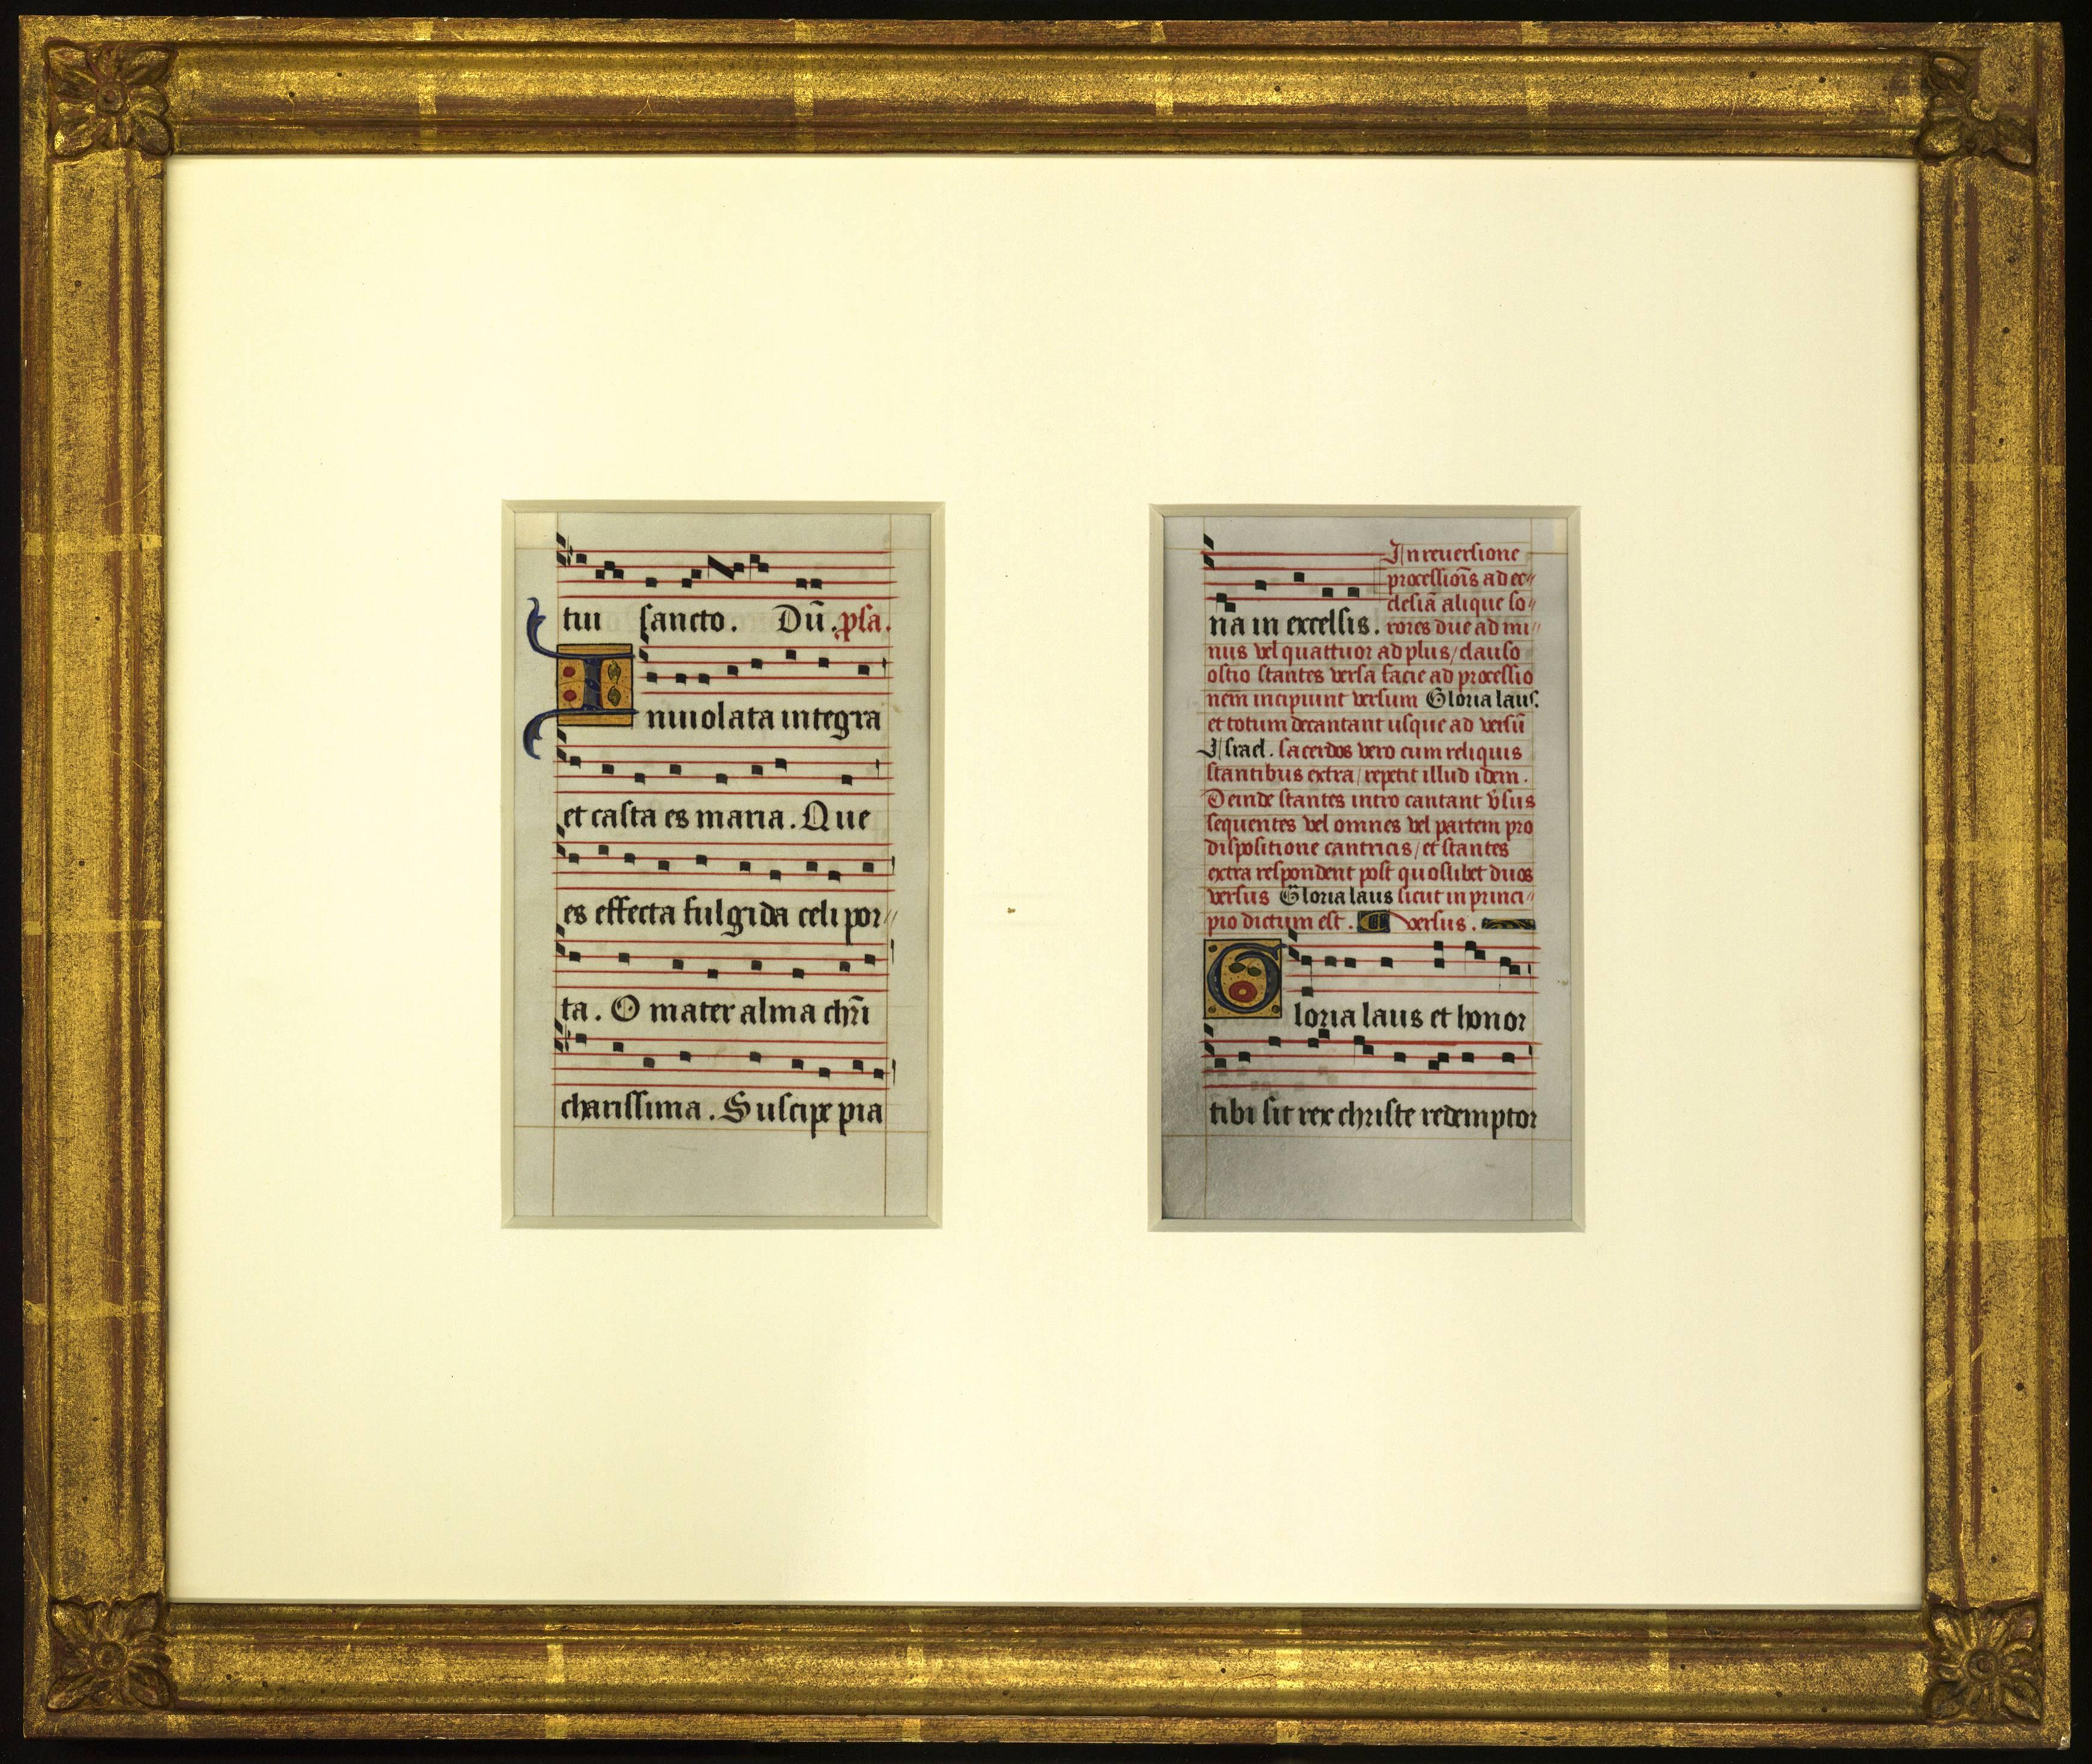 tui sancto. Dũ. psa.
Inuiolata integra
et casta es maria. Que
es effecta fulgida celi por⸗
ta. O mater alma chr̃i
charissima. Suscipe pia
In reuersione
processiõis ad ec⸗
clesiã alique so⸗
na in excelsis. rores due ad mi⸗
nus vel quattuor ad plus/ clauso
ostio stantes versa facie ad processio
nem incipiunt versum Gloria laus.
et totum decantant usque ad versũ
Israel. sacerdos vero cum reliquis
stantibus extra/ repetit illud idem.
Deinde stantes intro cantant v̓sus
sequentes vel omnes vel partem pro
dispositione cantricis/ et stantes
extra respondent post quoslibet duos
versus Gloria laus sicut in princi⸗
pio dictum est. versus.
Gloria laus et honor
tibi sit rex christe redemptor